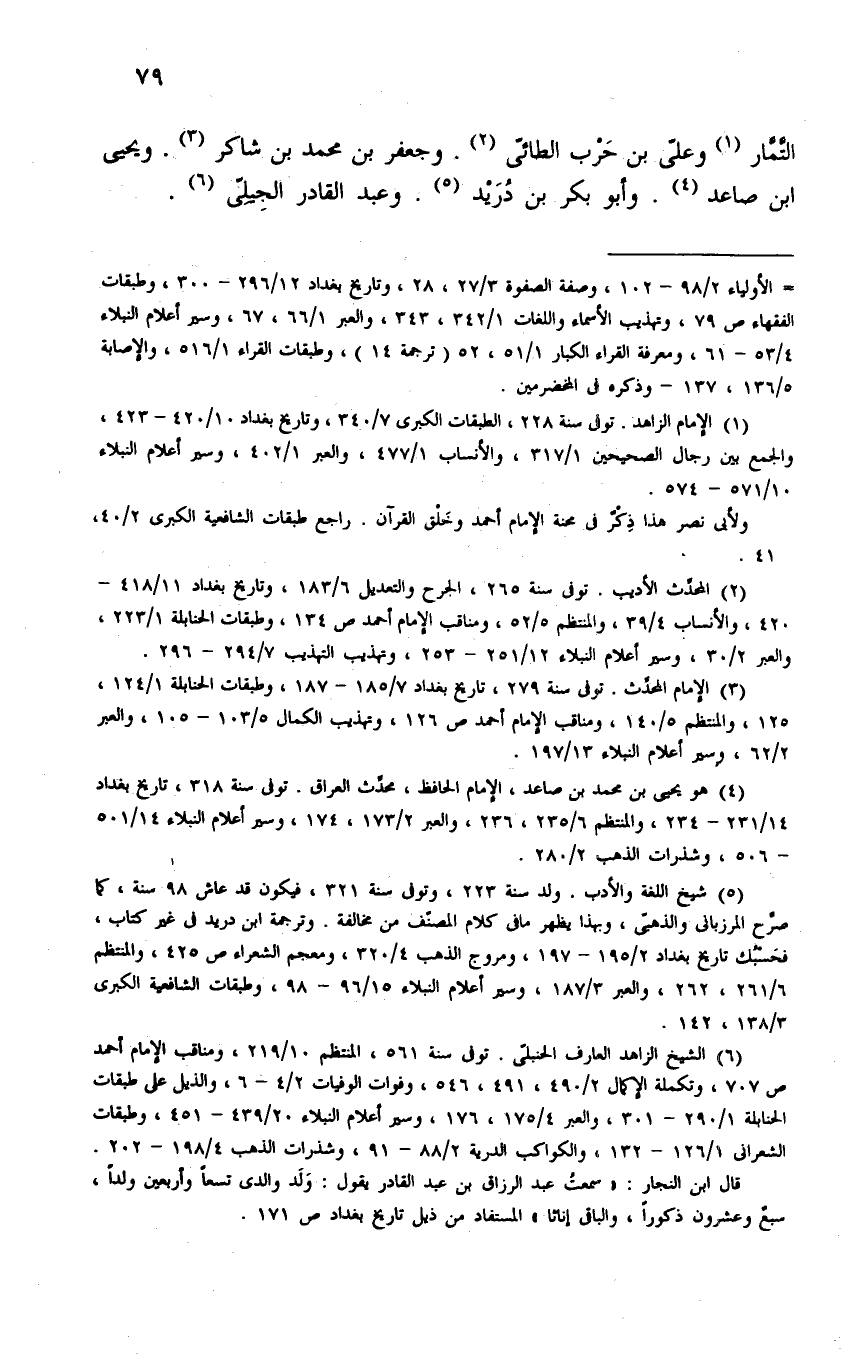 ٧٩
التَّمَّار (١) وعلىّ بن حَرْب الطائىّ (٢) . وجعفر بن محمد بن شاكر (٣) . ويحيى
ابن صاعد (٤) . وأبو بكر بن دُرَيْد (٥) . وعبد القادر الجِيلِىّ (٦) .
= الأولياء ٩٨/٢ – ١٠٢ ، وصفة الصفوة ٢٧/٣ ، ٢٨ ، وتاريخ بغداد ٢٩٦/١٢ – ٣٠٠ ، وطبقات
الفقهاء ص ٧٩ ، وتهذيب الأسماء واللغات ٣٤٢/١ ، ٣٤٣ ، والعبر ٦٦/١ ، ٦٧ ، وسير أعلام النبلاء
٥٣/٤ – ٦١ ، ومعرفة القراء الكبار ٥١/١ ، ٥٢ ( ترجمة ١٤ ) ، وطبقات القراء ٥١٦/١ ، والإصابة
١٣٦/٥ ، ١٣٧ – وذكره فى المخضرمين .
(١) الإمام الزاهد . توفى سنة ٢٢٨ ، الطبقات الكبرى ٣٤٠/٧ ، وتاريخ بغداد ٤٢٠/١٠ – ٤٢٣ ،
والجمع بين رجال الصحيحين ٣١٧/١ ، والأنساب ٤٧٧/١ ، والعبر ٤٠٢/١ ، وسير أعلام النبلاء
٥٧١/١٠ – ٥٧٤ .
ولأبى نصر هذا ذِكْرٌ فى محنة الإمام أحمد وخَلْق القرآن . راجع طبقات الشافعية الكبرى ٤٠/٢،
٤١ .
(٢) المحدِّث الأديب . توفى سنة ٢٦٥ ، الجرح والتعديل ١٨٣/٦ ، وتاريخ بغداد ٤١٨/١١ –
٤٢٠ ، والأنساب ٣٩/٤ ، والمنتظم ٥٢/٥ ، ومناقب الإمام أحمد ص ١٣٤ ، وطبقات الحنابلة ٢٢٣/١ ،
والعبر ٣٠/٢ ، وسير أعلام النبلاء ٢٥١/١٢ – ٢٥٣ ، وتهذيب التهذيب ٢٩٤/٧ – ٢٩٦ .
(٣) الإمام المحدِّث . توفى سنة ٢٧٩ ، تاريخ بغداد ١٨٥/٧ – ١٨٧ ، وطبقات الحنابلة ١٢٤/١ ،
١٢٥ ، والمنتظم ١٤٠/٥ ، ومناقب الإمام أحمد ص ١٢٦ ، وتهذيب الكمال ١٠٣/٥ – ١٠٥ ، والعبر
٦٢/٢ ، وسير أعلام النبلاء ١٩٧/١٣ .
(٤) هو يحيى بن محمد بن صاعد ، الإمام الحافظ ، محدِّث العراق . توفى سنة ٣١٨ ، تاريخ بغداد
٢٣١/١٤ – ٢٣٤ ، والمنتظم ٢٣٥/٦ ، ٢٣٦ ، والعبر ١٧٣/٢ ، ١٧٤ ، وسير أعلام النبلاء ٥٠١/١٤
– ٥٠٦ ، وشذرات الذهب ٢٨٠/٢ .
(٥) شيخ اللغة والأدب . ولد سنة ٢٢٣ ، وتوفى سنة ٣٢١ ، فيكون قد عاش ٩٨ سنة ، كما
صرَّح المرزبانى والذهبىّ ، وبهذا يظهر مافى كلام المصنّف من مخالفة . وترجمة ابن دريد فى غير كتاب ،
فحَسْبُك تاريخ بغداد ١٩٥/٢ – ١٩٧ ، ومروج الذهب ٣٢٠/٤ ، ومعجم الشعراء ص ٤٢٥ ، والمنتظم
٢٦١/٦ ، ٢٦٢ ، والعبر ١٨٧/٣ ، وسير أعلام النبلاء ٩٦/١٥ – ٩٨ ، وطبقات الشافعية الكبرى
١٣٨/٣ ، ١٤٢ .
(٦) الشيخ الزاهد العارف الحنبلىّ . توفى سنة ٥٦١ ، المنتظم ٢١٩/١٠ ، ومناقب الإمام أحمد
ص ٧٠٧ ، وتكملة الإكمال ٤٩٠/٢ ، ٤٩١ ، ٥٤٦ ، وفوات الوفيات ٤/٢ – ٦ ، والذيل على طبقات
الحنابلة ٢٩٠/١ – ٣٠١ ، والعبر ١٧٥/٤ ، ١٧٦ ، وسير أعلام النبلاء ٤٣٩/٢٠ – ٤٥١ ، وطبقات
الشعرانى ١٢٦/١ – ١٣٢ ، والكواكب الدرية ٨٨/٢ – ٩١ ، وشذرات الذهب ١٩٨/٤ – ٢٠٢ .
قال ابن النجار : « سمعتُ عبد الرزاق بن عبد القادر يقول : وَلَد والدى تسعاً وأربعين ولداً ،
سبعٌ وعشرون ذكوراً ، والباقى إناثا » المستفاد من ذيل تاريخ بغداد ص ١٧١ .